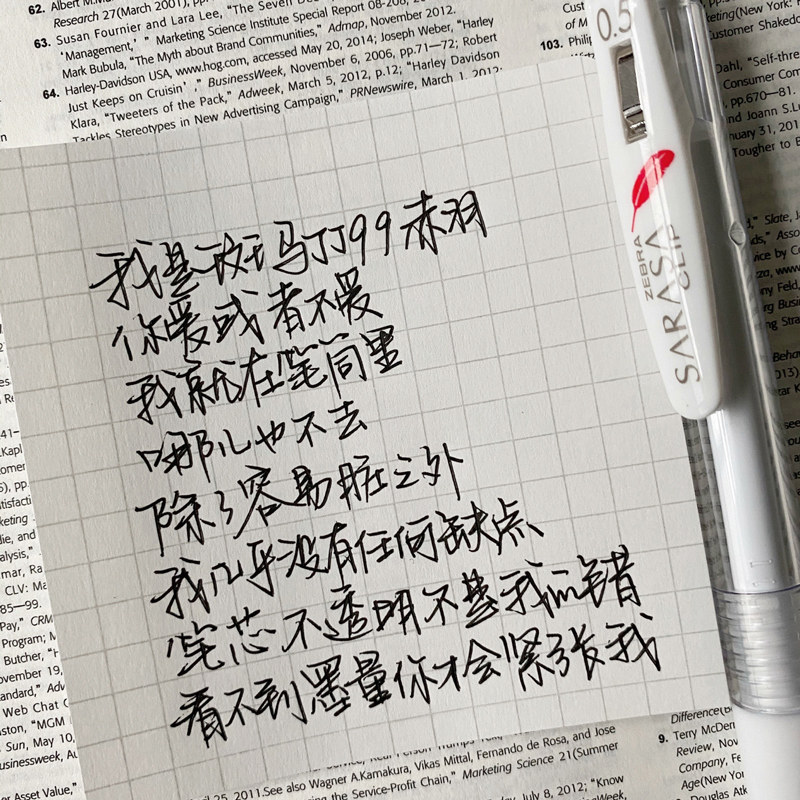 62. Albert M. Mu
Research 27(March 2001), pp.
63. Susan Fournier and Lara Lee, "The Seven Dee
'Management,' " Marketing Science Institute Special Report 08-208, 2
Mark Bubula, "The Myth about Brand Communities," Admap, November 2012.
64. Harley-Davidson USA, www.hog.com, accessed May 20, 2014; Joseph Weber, "Harley
Just Keeps on Cruisin' ," BusinessWeek, November 6, 2006, pp.71—72; Robert
Klara, "Tweeters of the Pack," Adweek, March 5, 2012, p.12; "Harley Davidson
Tackles Stereotypes in New Advertising Campaign," PRNewswire, March 1, 2012;
我是斑马JJ99赤羽
你爱或者不爱
我就在笔筒里
哪儿也不去
除了容易脏之外
我几乎没有任何缺点
笔芯不透明不是我的错
看不到墨量你才会紧张我
0.5
ZEBRA
SARASA
CLIP
103. Phili
Dahl, "Self-thre
Consumer Com
pp.670—81.
nd Joann S.L
nuary 31, 201
Tougher to E
Slate, J
ny Feld,
rg Busi
ng Stra
Behav
013)
Kapl
tisfacti
keting
die, and
alysis,"
mar, Ra
CLV: Ma
85—99.
Pay," CRM
Program; M
Butcher, "H
ovember 19,
andard," Adv
Web Chat
ston, "MGM
Sun, May 10,
usinessweek, Au
er Asset Value,"
2011.See also Wagner A.Kamakura, Vikas Mittal, Fernando de Rosa, and Jose
ing the Service-Profit Chain," Marketing Science 21(Summer
July 8, 2012; "Know
Difference(B
9. Terry McDer
Review, Nov
Company, Fe
Age(New York
Douglas Atk